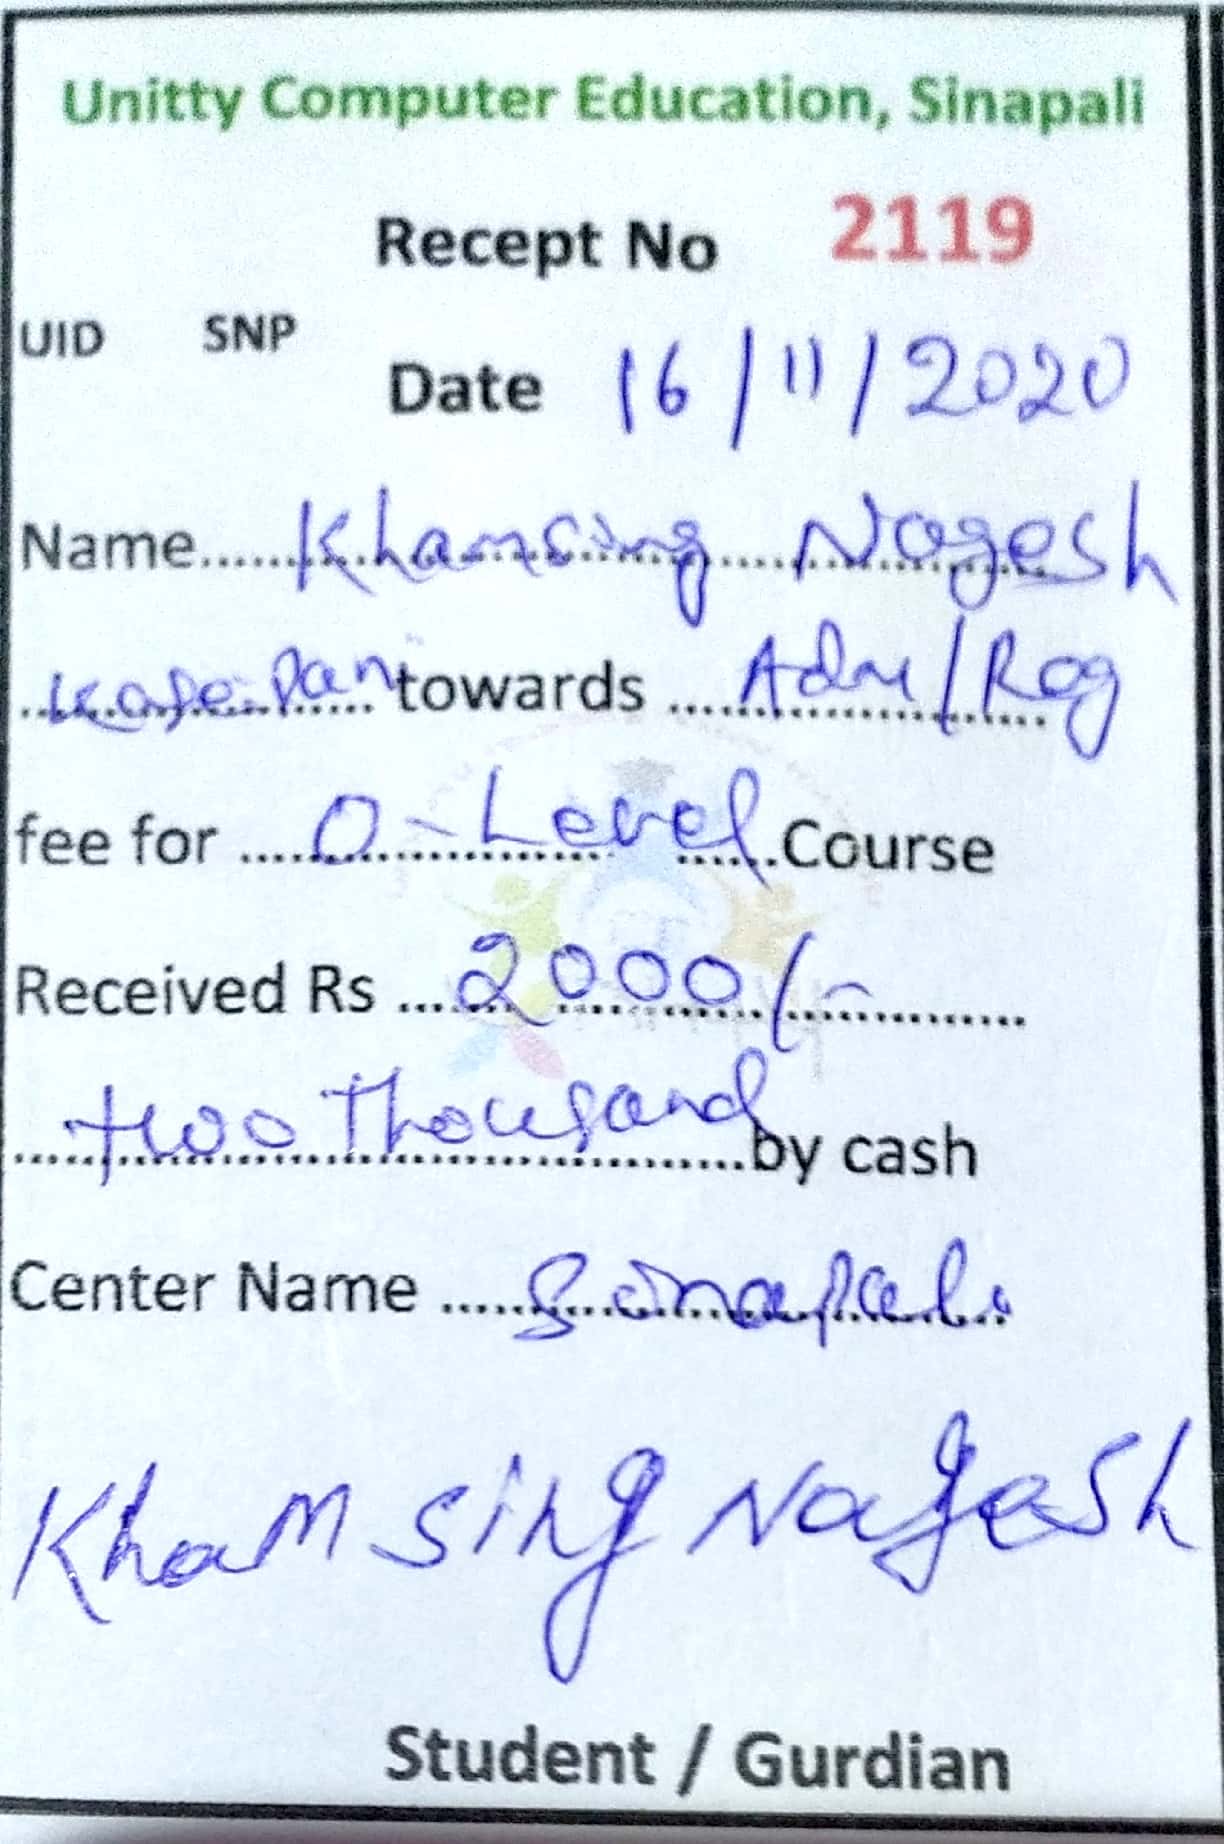 Unitty Computer Education, Sinapali
Recept No 2119
UID SNP
Date 16/11/2020
Name......Khamsing Nagesh
towards ...Adm/Reg
fee for ....O-Level....Course
Received Rs ...2000/-
two thousand by cash
Center Name .....Sinapali
Kham sing Nagesh
Student / Gurdian